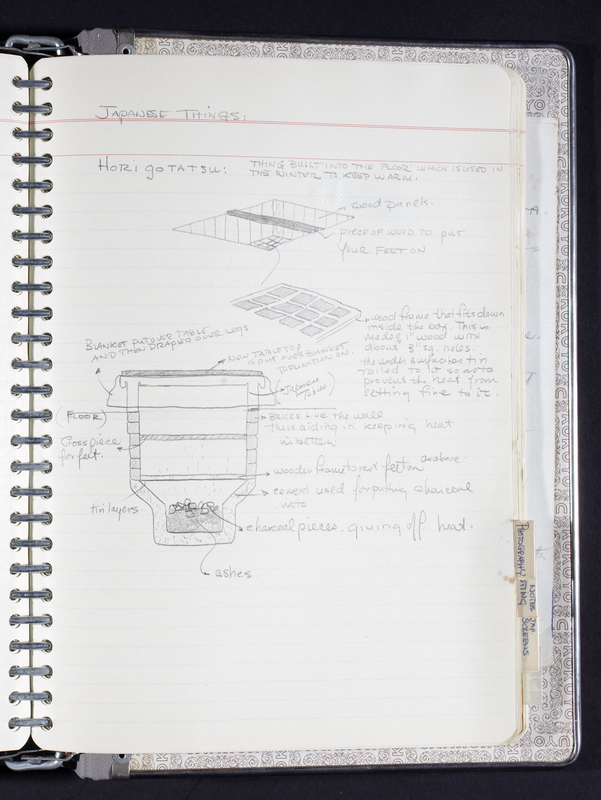 JAPANESE THINGS:
HORI goTATSU: THING BUILT INTO THE FLOOR WHICH IS USED IN
THE WINTER TO KEEP WARM.
wood panels.
PIECE OF WOOD TO put
YOUR FEET ON
wood frame that fits down
inside the box. This is
made of 1" wood with
about 3" sq. holes.
the under surface tin
nailed to it so as to
prevent the heat from
setting fire to it.
BLANKET PUT OVER TABLE
AND THEN DRAPED OVER LEGS
NEW TABLE TOP
IS PUT OVER BLANKET
TO
ON.
(Japanese
(FLOOR)
BRICKS LINE THE WALL
thus aiding in keeping heat
in better
Cross piece
for feet.
wooden frame to rest feet on as above
cement used for puting charcoal
into
tin layers.
charcoal pieces. giving off heat.
ashes.
PHOTOGRAPHY
NOTES JAP
SCREENS
KOKUYO